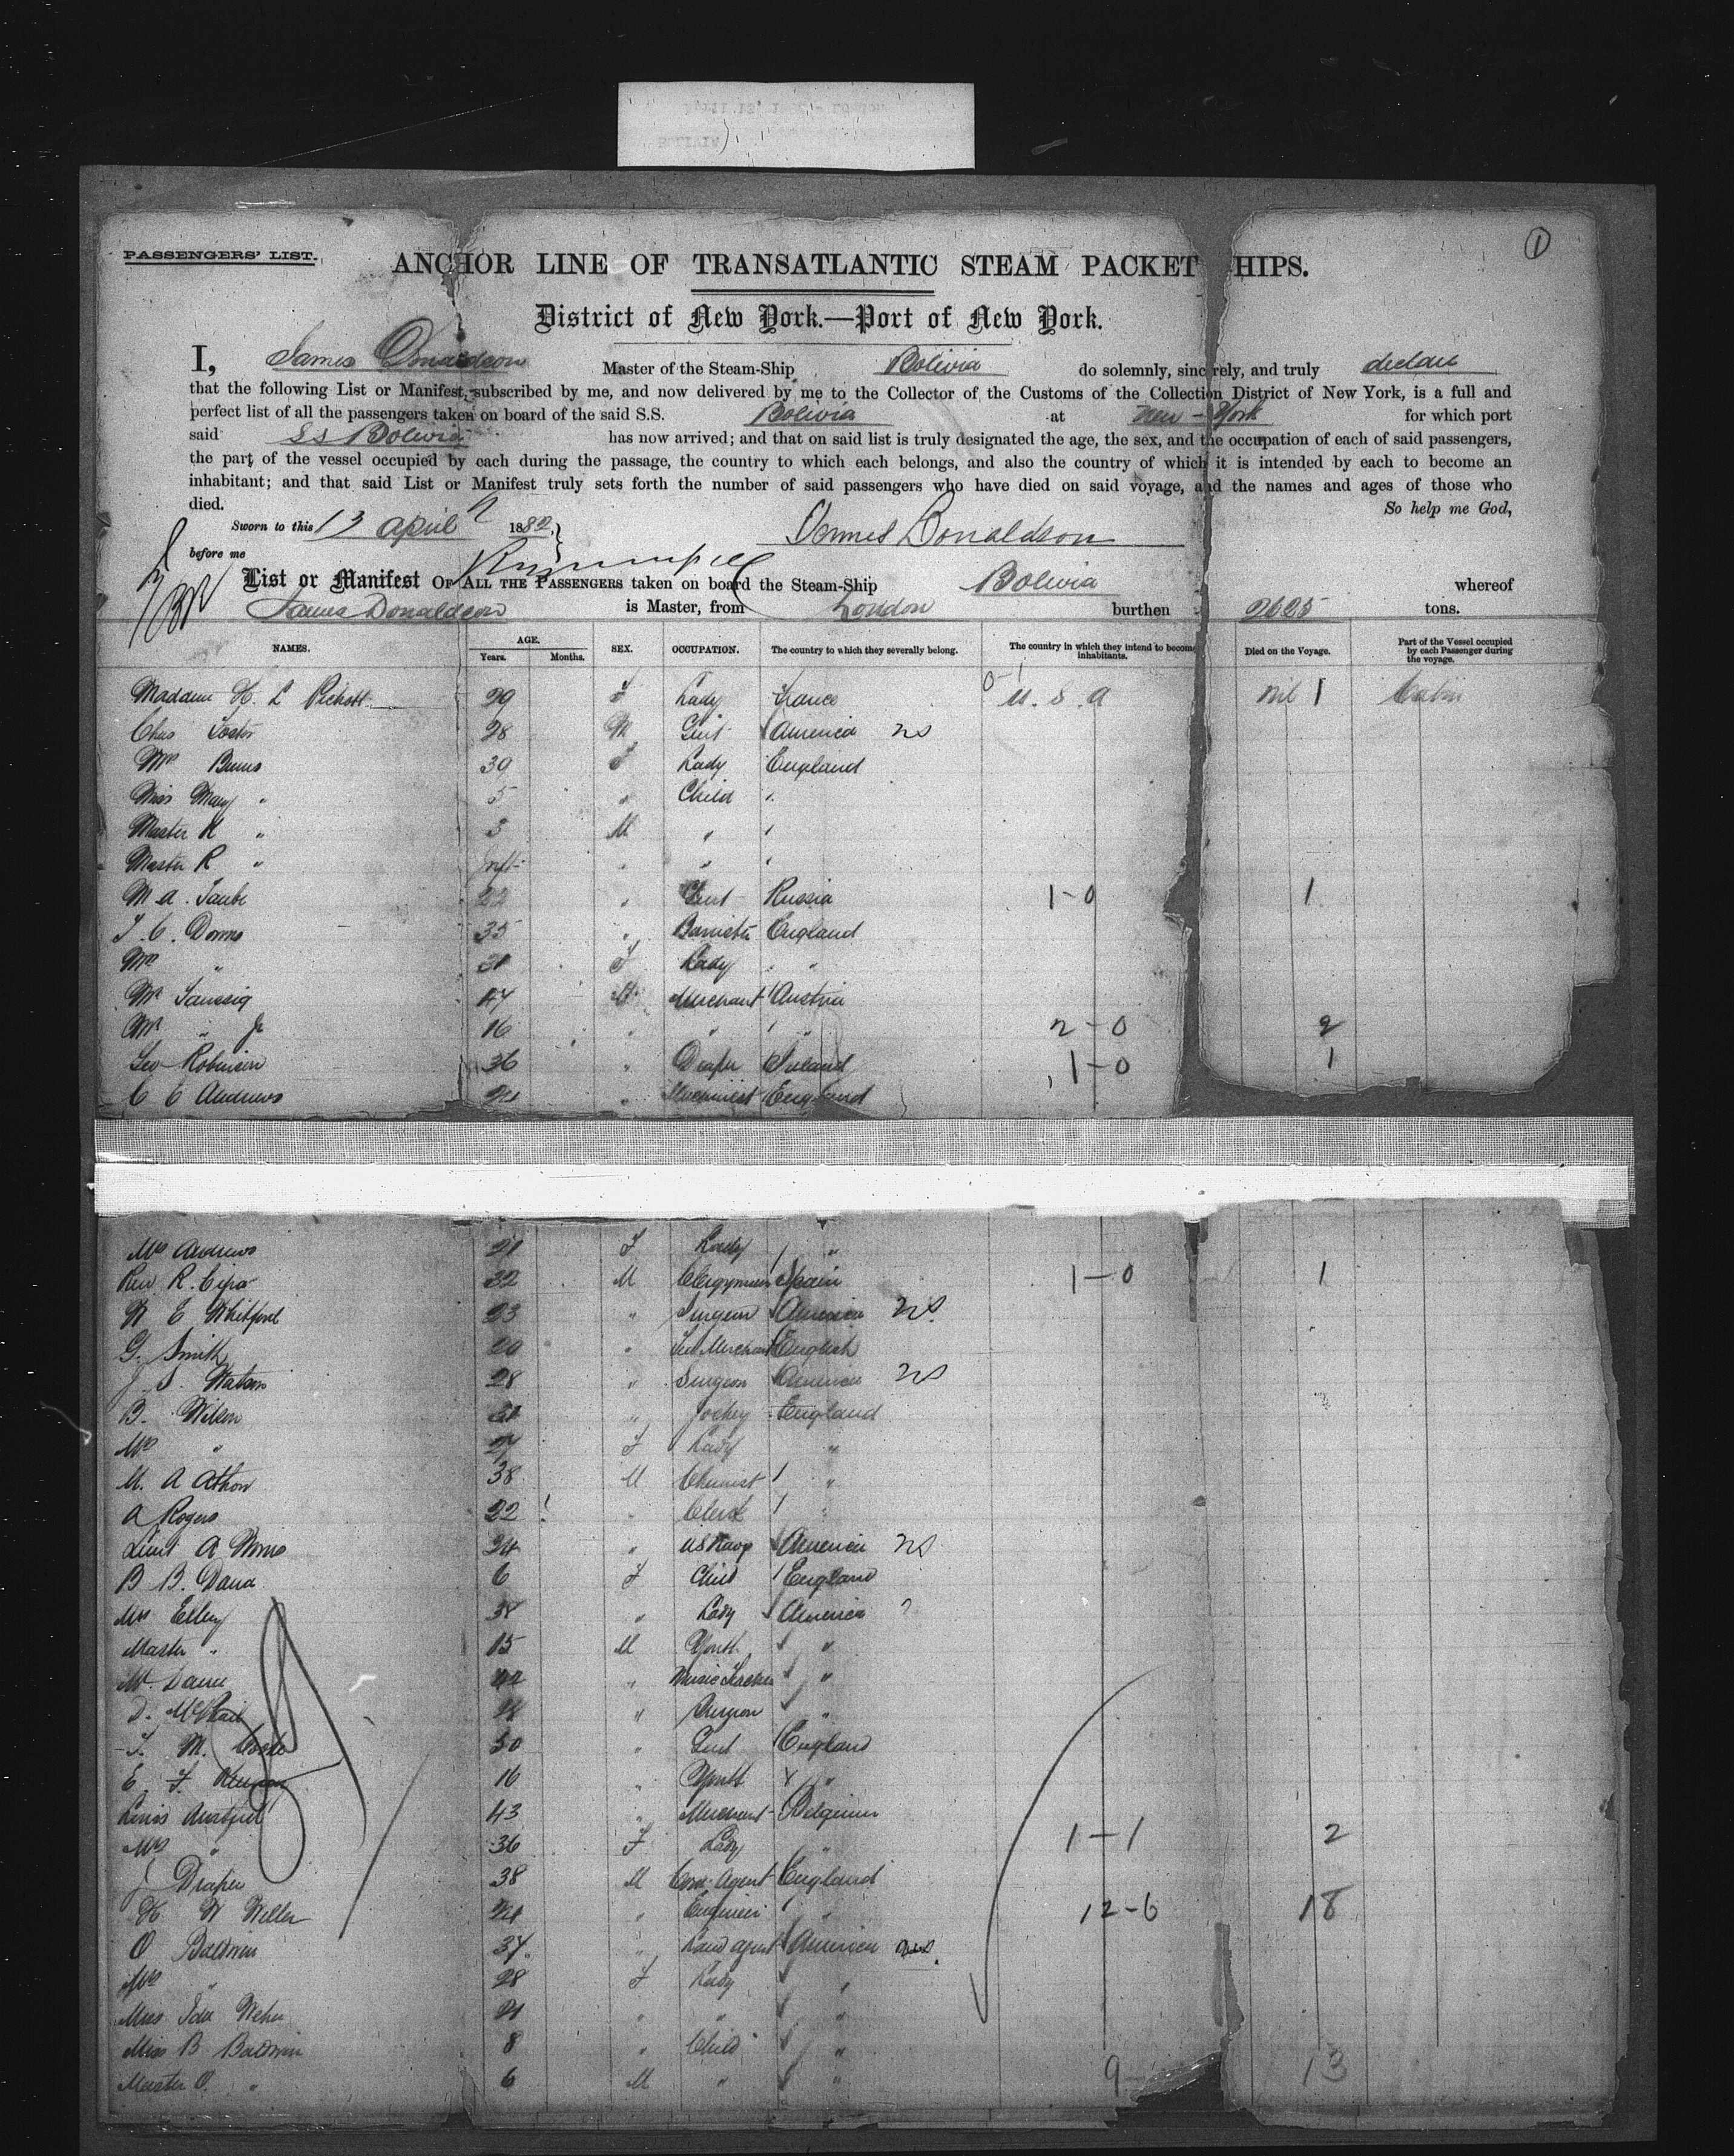 ①
PASSENGERS' LIST.
ANCHOR LINE OF TRANSATLANTIC STEAM PACKET HIPS.
District of New York.—Port of New York.
I, James Donaldson Master of the Steam-Ship Bolivia do solemnly, sincerely, and truly declare
that the following List or Manifest, subscribed by me, and now delivered by me to the Collector of the Customs of the Collection District of New York, is a full and
perfect list of all the passengers taken on board of the said S.S. Bolivia at New-York for which port
said SS Bolivia has now arrived; and that on said list is truly designated the age, the sex, and the occupation of each of said passengers,
the part of the vessel occupied by each during the passage, the country to which each belongs, and also the country of which it is intended by each to become an
inhabitant; and that said List or Manifest truly sets forth the number of said passengers who have died on said voyage, and the names and ages of those who
died. So help me God,
Sworn to this 13 April 1882. James Donaldson
before me
List or Manifest OF ALL THE PASSENGERS taken on board the Steam-Ship Bolivia whereof
James Donaldson is Master, from London burthen 2625 tons.
NAMES. AGE. Years. Months. SEX. OCCUPATION. The country to which they severally belong. The country in which they intend to become inhabitants. Died on the Voyage. Part of the Vessel occupied by each Passenger during the voyage.
0-1
Madame H. L 29 F Lady France U.S.A nil 1 Cabin
Chas Foster 28 M Gent America ns
Mrs Burns 30 F Lady England
Miss Mary " 5 " Child "
Master H " 3 M " "
Master R " Inft " " "
M. A. Taube 22 " Gent Russia 1-0 1
T. C. 35 " Barrister England
Mrs " 31 F Lady "
Mr Taussig 47 M Merchant Austria
Mr " Jr 16 " " " 2-0 2
Geo Robinson 36 " Draper Ireland 1-0 1
C C Andrews 24 " England
Mrs Andrews 21 F Lady "
Rev R. 32 M Clergyman Spain 1-0 1
W E Whitford 23 " Surgeon America ns.
G. Smith 20 " Merchant English
J S. Watson 28 " Surgeon America ns
B. Wilson 31 " Jockey England
Mrs " 27 F Lady "
M. A Athon 38 M Chemist "
A Rogers 22 " Clerk "
Lieut A 24 " US Navy America ns
B B. Dana 6 F Child England
Mrs 38 " Lady America ?
Master " 15 M Youth "
M. Dana 42 " Music Teacher "
D. McPhail " Surgeon "
T. M. 50 " Gent England
E. F. 16 " Youth "
Louis 43 " Merchant Belgium
Mrs " 36 F Lady " 1-1 2
J Draper 38 M Com. Agent England
H W Weller 24 " Engineer " 12-6 18
O Baldwin 37. " Land agent America
Mrs " 28 F Lady "
Miss Ida 21 " " "
Miss B Baldwin 8 " Child "
Master O. " 6 M " " 9 13